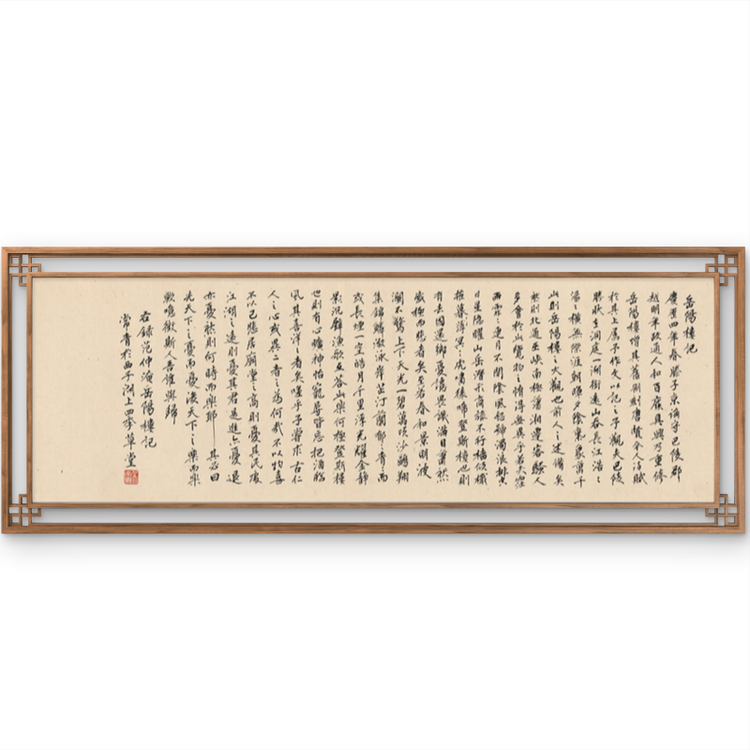 岳陽樓記
慶曆四年春滕子京謫守巴陵郡
越明年政通人和百廢具興乃重修
岳陽樓增其舊制刻唐賢今人詩賦
於其上屬予作文以記之予觀夫巴陵
勝狀在洞庭一湖銜遠山吞長江浩〻
湯〻橫無際涯朝暉夕陰氣象萬千
此則岳陽樓之大觀也前人之述備矣
然則北通巫峽南極瀟湘遷客騷人
多會於此覽物之情得無異乎若夫霪
雨霏〻連月不開陰風怒號濁浪排空
日星隱耀山岳潛形商旅不行檣傾楫
摧薄暮冥〻虎嘯猿啼登斯樓也則
有去國還鄉憂讒畏譏滿目蕭然
感極而悲者矣至若春和景明波
瀾不驚上下天光一碧萬頃沙鷗翔
集錦鱗游泳岸芷汀蘭郁〻青〻而
或長煙一空皓月千里浮光耀金靜
影沉璧漁歌互答此樂何極登斯樓
也則有心曠神怡寵辱皆忘把酒臨
風其喜洋〻者矣嗟乎予嘗求古仁
人之心或異二者之為何哉不以物喜
不以己悲居廟堂之高則憂其民處
江湖之遠則憂其君是進亦憂退
亦憂然則何時而樂耶其必曰
先天下之憂而憂後天下之樂而樂
歟噫微斯人吾誰與歸
右錄范仲淹岳陽樓記
常青於西子湖上四季草堂